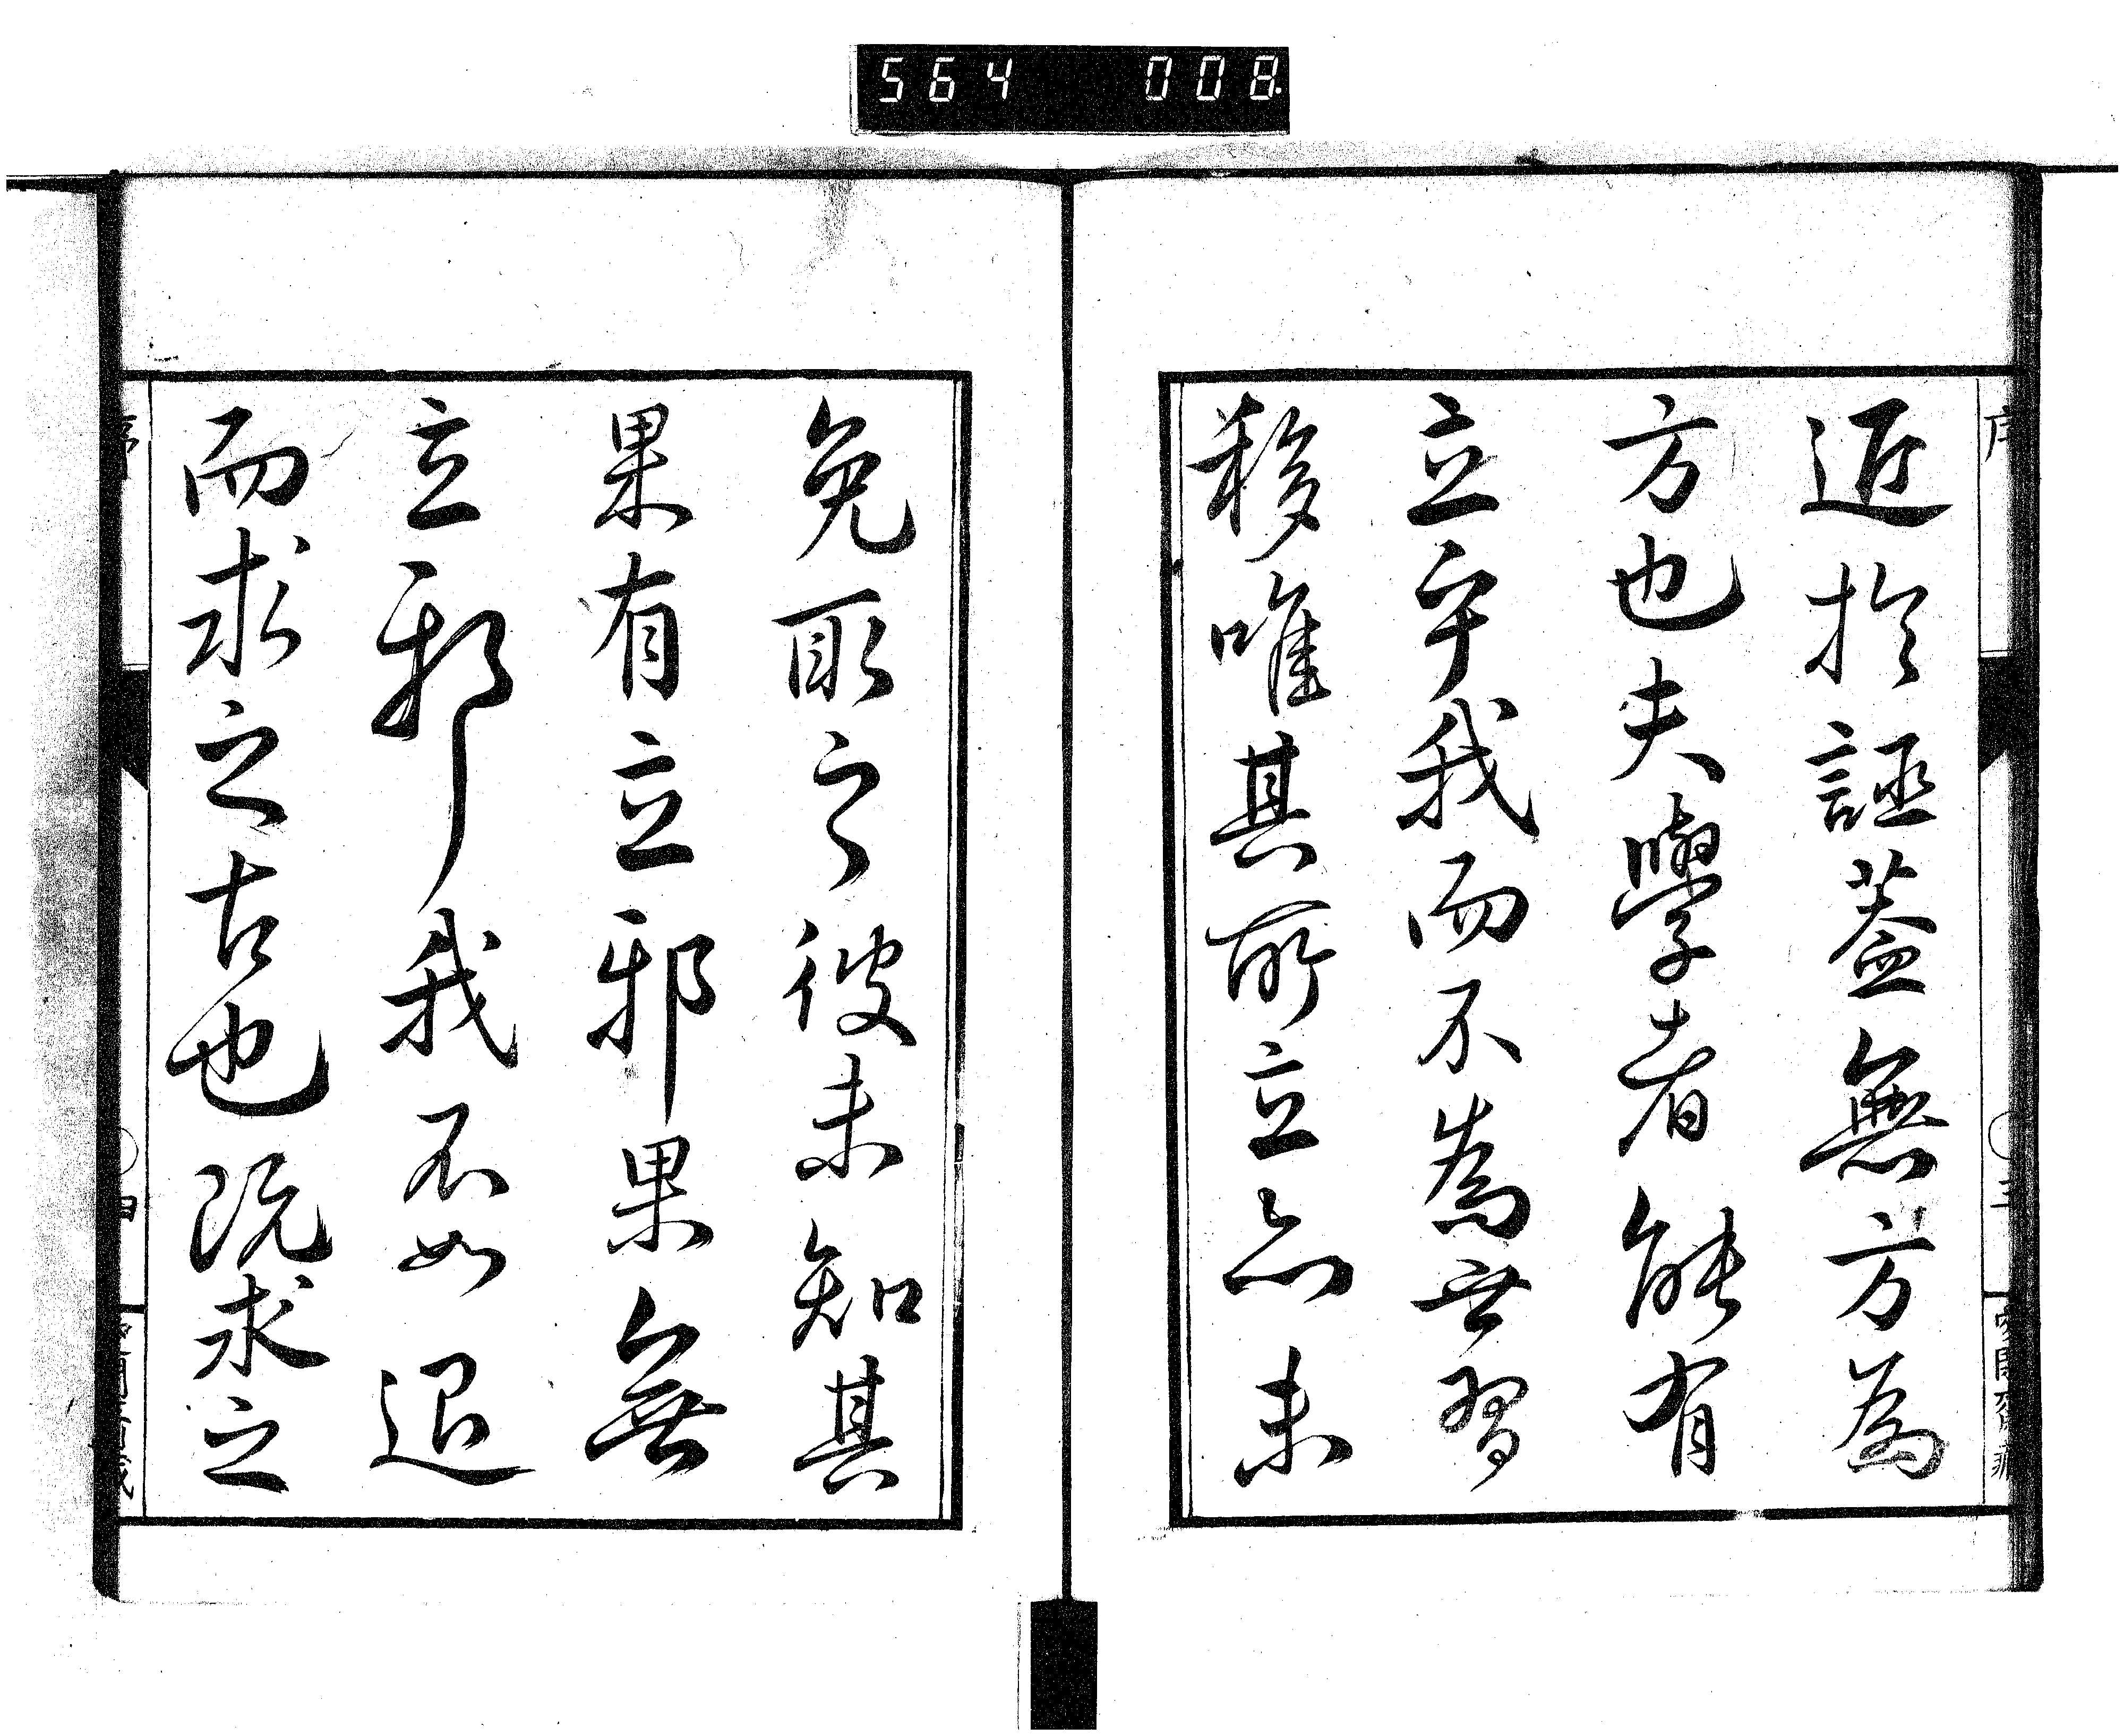 564 008
近於誣蓋無方為
方也夫學者能有
立乎我而不為世習
移唯其所立亦未
免取之彼未知其
果有立邪果無
立邪我不如退
而求之古也既求之
序
四